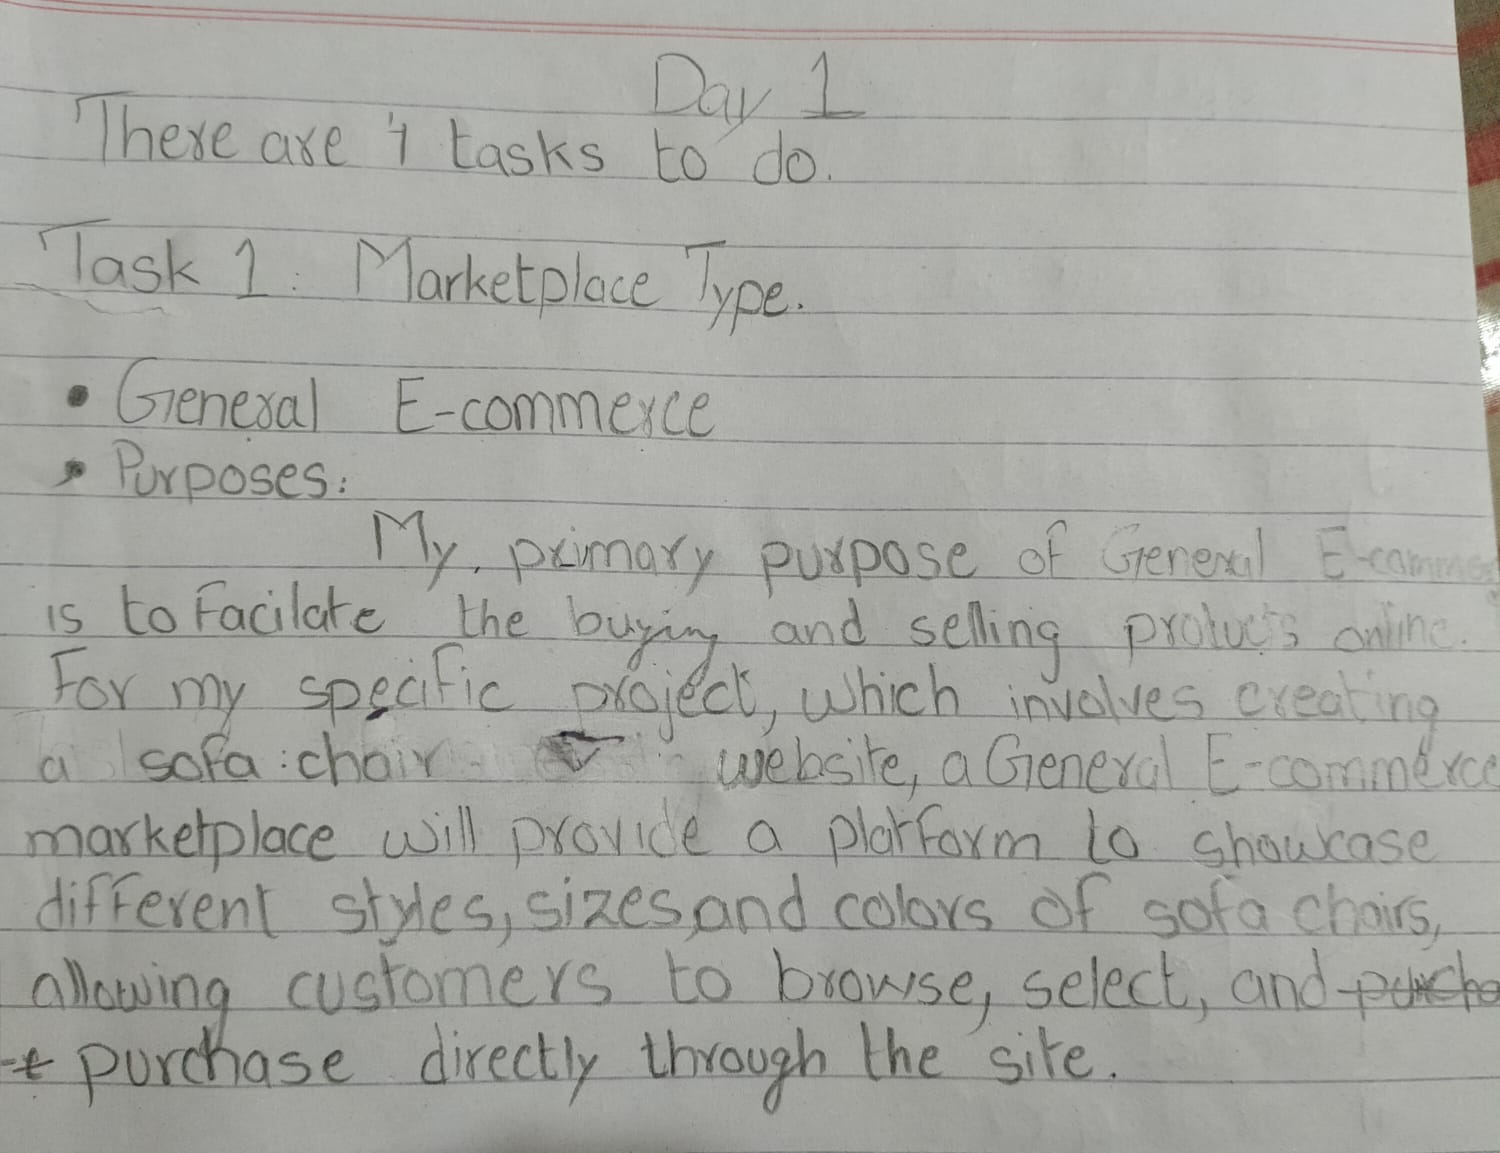 Day 1
There are 4 tasks to do.
Task 1: Marketplace Type.
• General E-commerce
• Purposes:
My primary purpose of General E-comme
is to Facilate the buying and selling products online.
For my specific project, which involves creating
a sofa chair website, a General E-commerce
marketplace will provide a platform to showcase
different styles, sizes, and colors of sofa chairs,
allowing customers to browse, select, and purcha
purchase directly through the site.